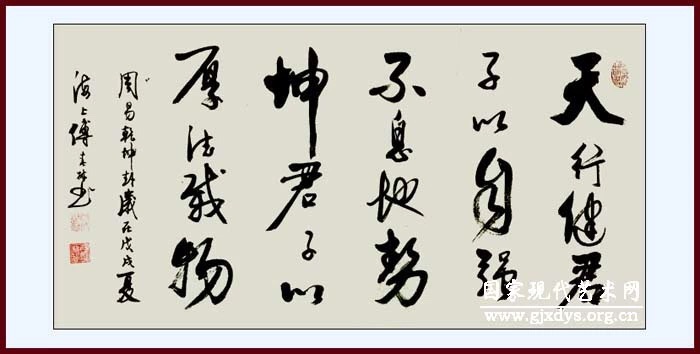 天行健君
子以自强
不息地势
坤君子以
厚德载物
周易乾坤卦歲在戊戌夏
海上傅书
国家现代艺术网
www.gjxdys.org.cn